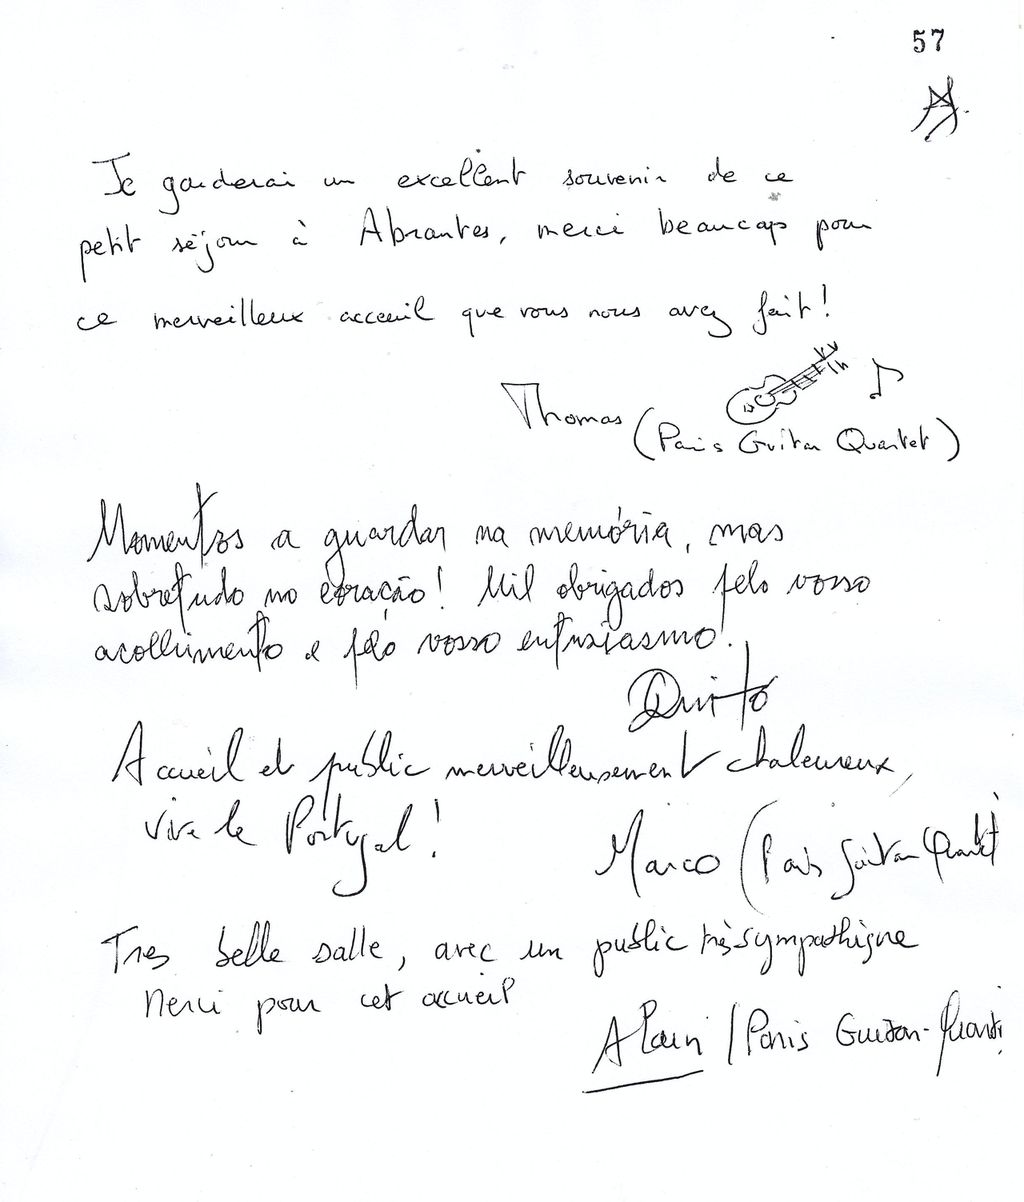 57
Je garderai un excellent souvenir de ce
petit séjour à Abrantes, merci beaucoup pour
ce merveilleux acceuil que vous nous avez fait!
Thomas (Paris Guitar Quartet)
Momentos a guardar na memória, mas
sobretudo no coração! Mil obrigados pelo vosso
acolhimento e pelo vosso entusiasmo!
Quito
Accueil et public merveilleusement chaleureux,
vive le Portugal!
Marco (Paris Guitar Quartet
Tres belle salle, avec un public très sympathique
Merci pour cet accueil
Alain / Paris Guitar-Quartet